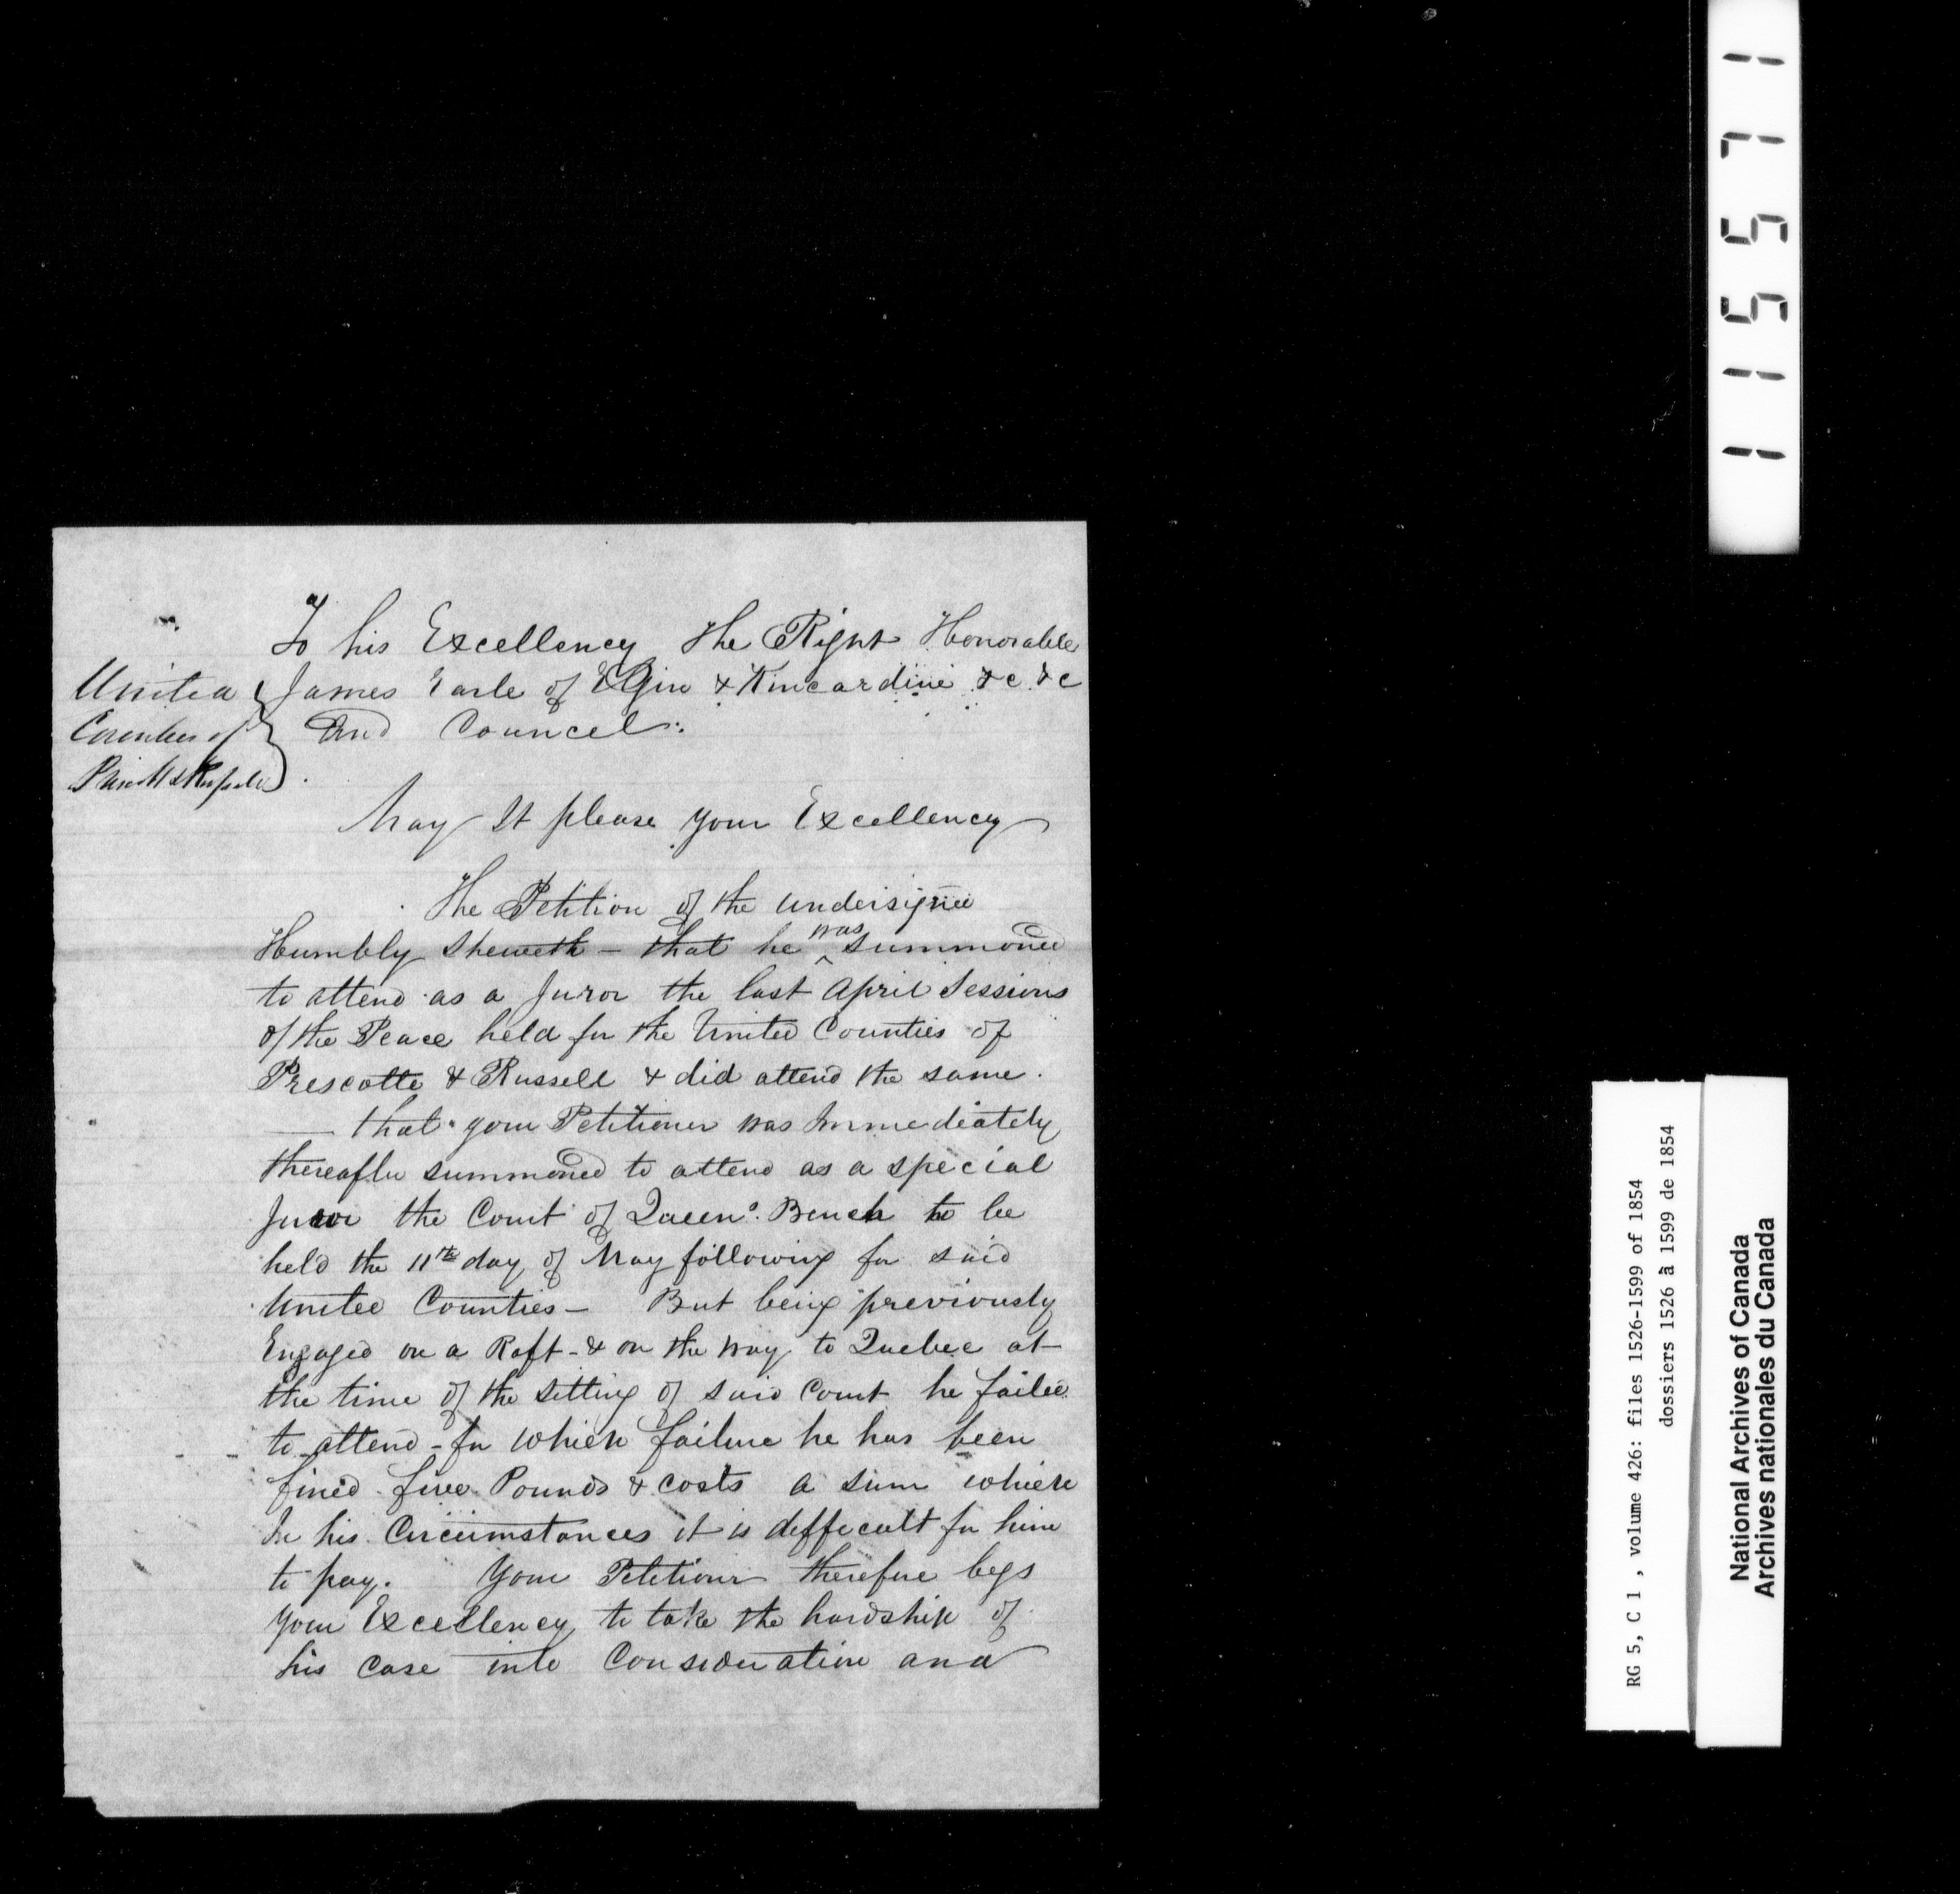 To his Excellency The Right Honorable
James Earle of Elgin & Kincardine &c &c
And Councel.
United
Counties of
Prescott & Russell
May It please your Excellency
The Petition of the undersigned
Humbly Sheweth - that he was summoned
to attend as a Juror the last April Sessions
of the Peace held for the United Counties of
Prescotte & Russell & did attend the same.
that your Petitioner was Immediately
thereafter summoned to attend as a special
Juror the Court of Queen's Bench to be
held the 11th day of May following for said
United Counties - But being previously
Engaged on a Raft - & on the way to Quebec at
the time of the Sitting of said Court he failed
to attend - for which failure he has been
fined five Pounds & costs a sum which
In his Circumstances it is difficult for him
to pay. Your Petitioner therefore begs
your Excellency to take the hardship of
his case into Consideration and
115571
RG 5, C 1 , volume 426: files 1526-1599 of 1854
dossiers 1526 à 1599 de 1854
National Archives of Canada
Archives nationales du Canada